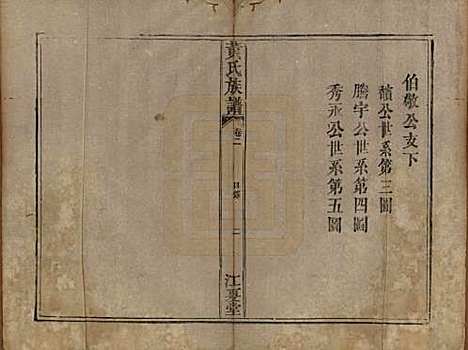 伯敬公支下
韻公世系第三圖
騰宇公世系第四圖
秀承公世系第五圖
黄氏族譜
卷二
目錄
二
江夏堂